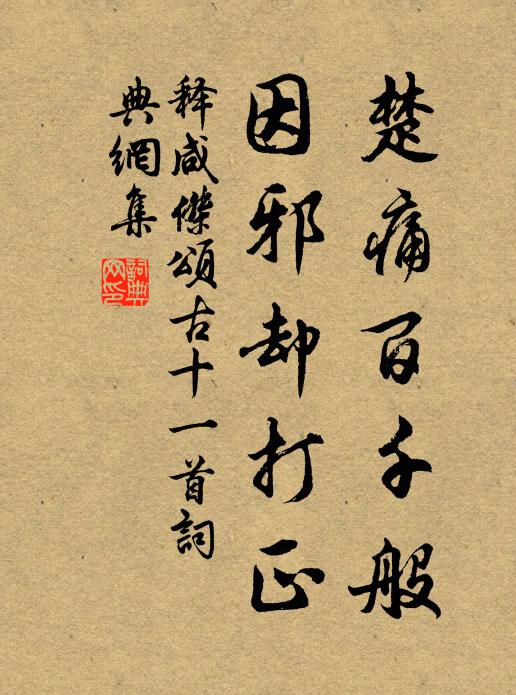 楚痛百千般
因邪却打正
释咸傑頌古十一首詞
典網集
詞典
网印